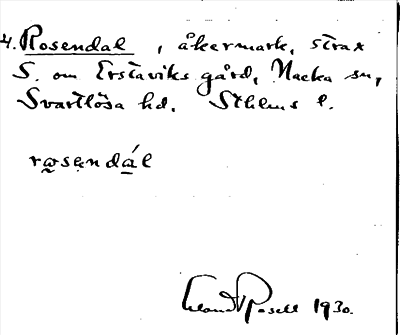 4. Rosendal, åkermark, strax
S. om Erstaviks gård, Nacka sn,
Svartlösa hd. Sthlms l.
rosendál
1930.